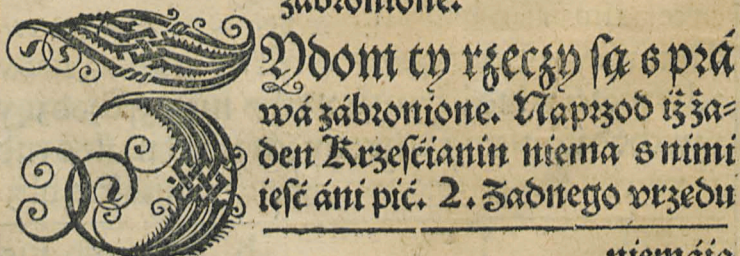 zábronione.
ZYdom ty rzeczy są s prá
wá zábronione. Naprzod iż ża⸗
den Krześćianin niema s nimi
ieść áni pić. 2. Żadnego vrzedu
niemáią